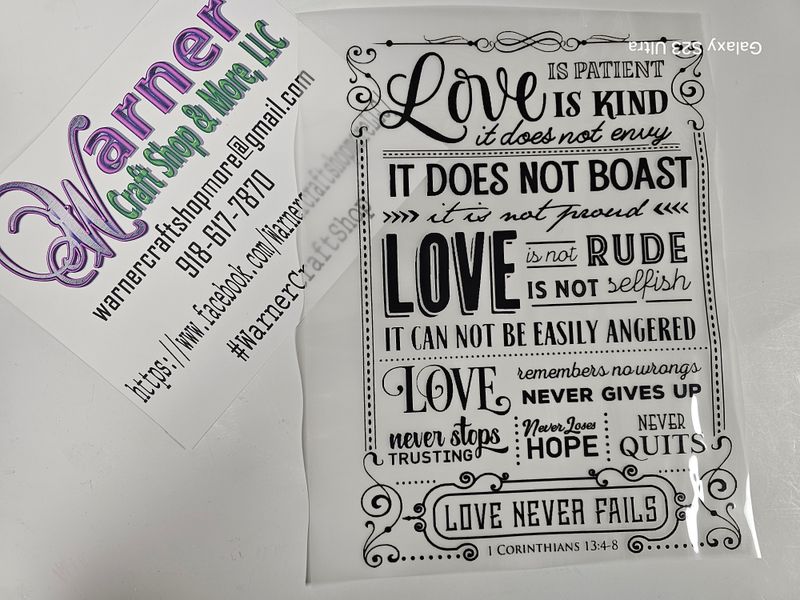 Warner
Craft Shop & More, LLC
warnercraftshopmore@gmail.com
918-617-7870
https://www.facebook.com/Warnercraftshopmore
#WarnerCraftShop
Galaxy S23 Ultra
Love IS PATIENT
IS KIND
it does not envy
IT DOES NOT BOAST
»»» it is not proud «««
LOVE is not RUDE
IS NOT selfish
IT CAN NOT BE EASILY ANGERED
LOVE remembers no wrongs
NEVER GIVES UP
never stops TRUSTING
Never Loses HOPE
NEVER QUITS
LOVE NEVER FAILS
1 CORINTHIANS 13:4-8